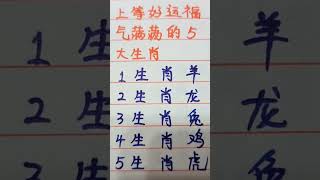 上等好运福
气满满的5
大生肖
1生肖羊
2生肖龙
3生肖兔
4生肖鸡
5生肖虎
羊
龙
兔